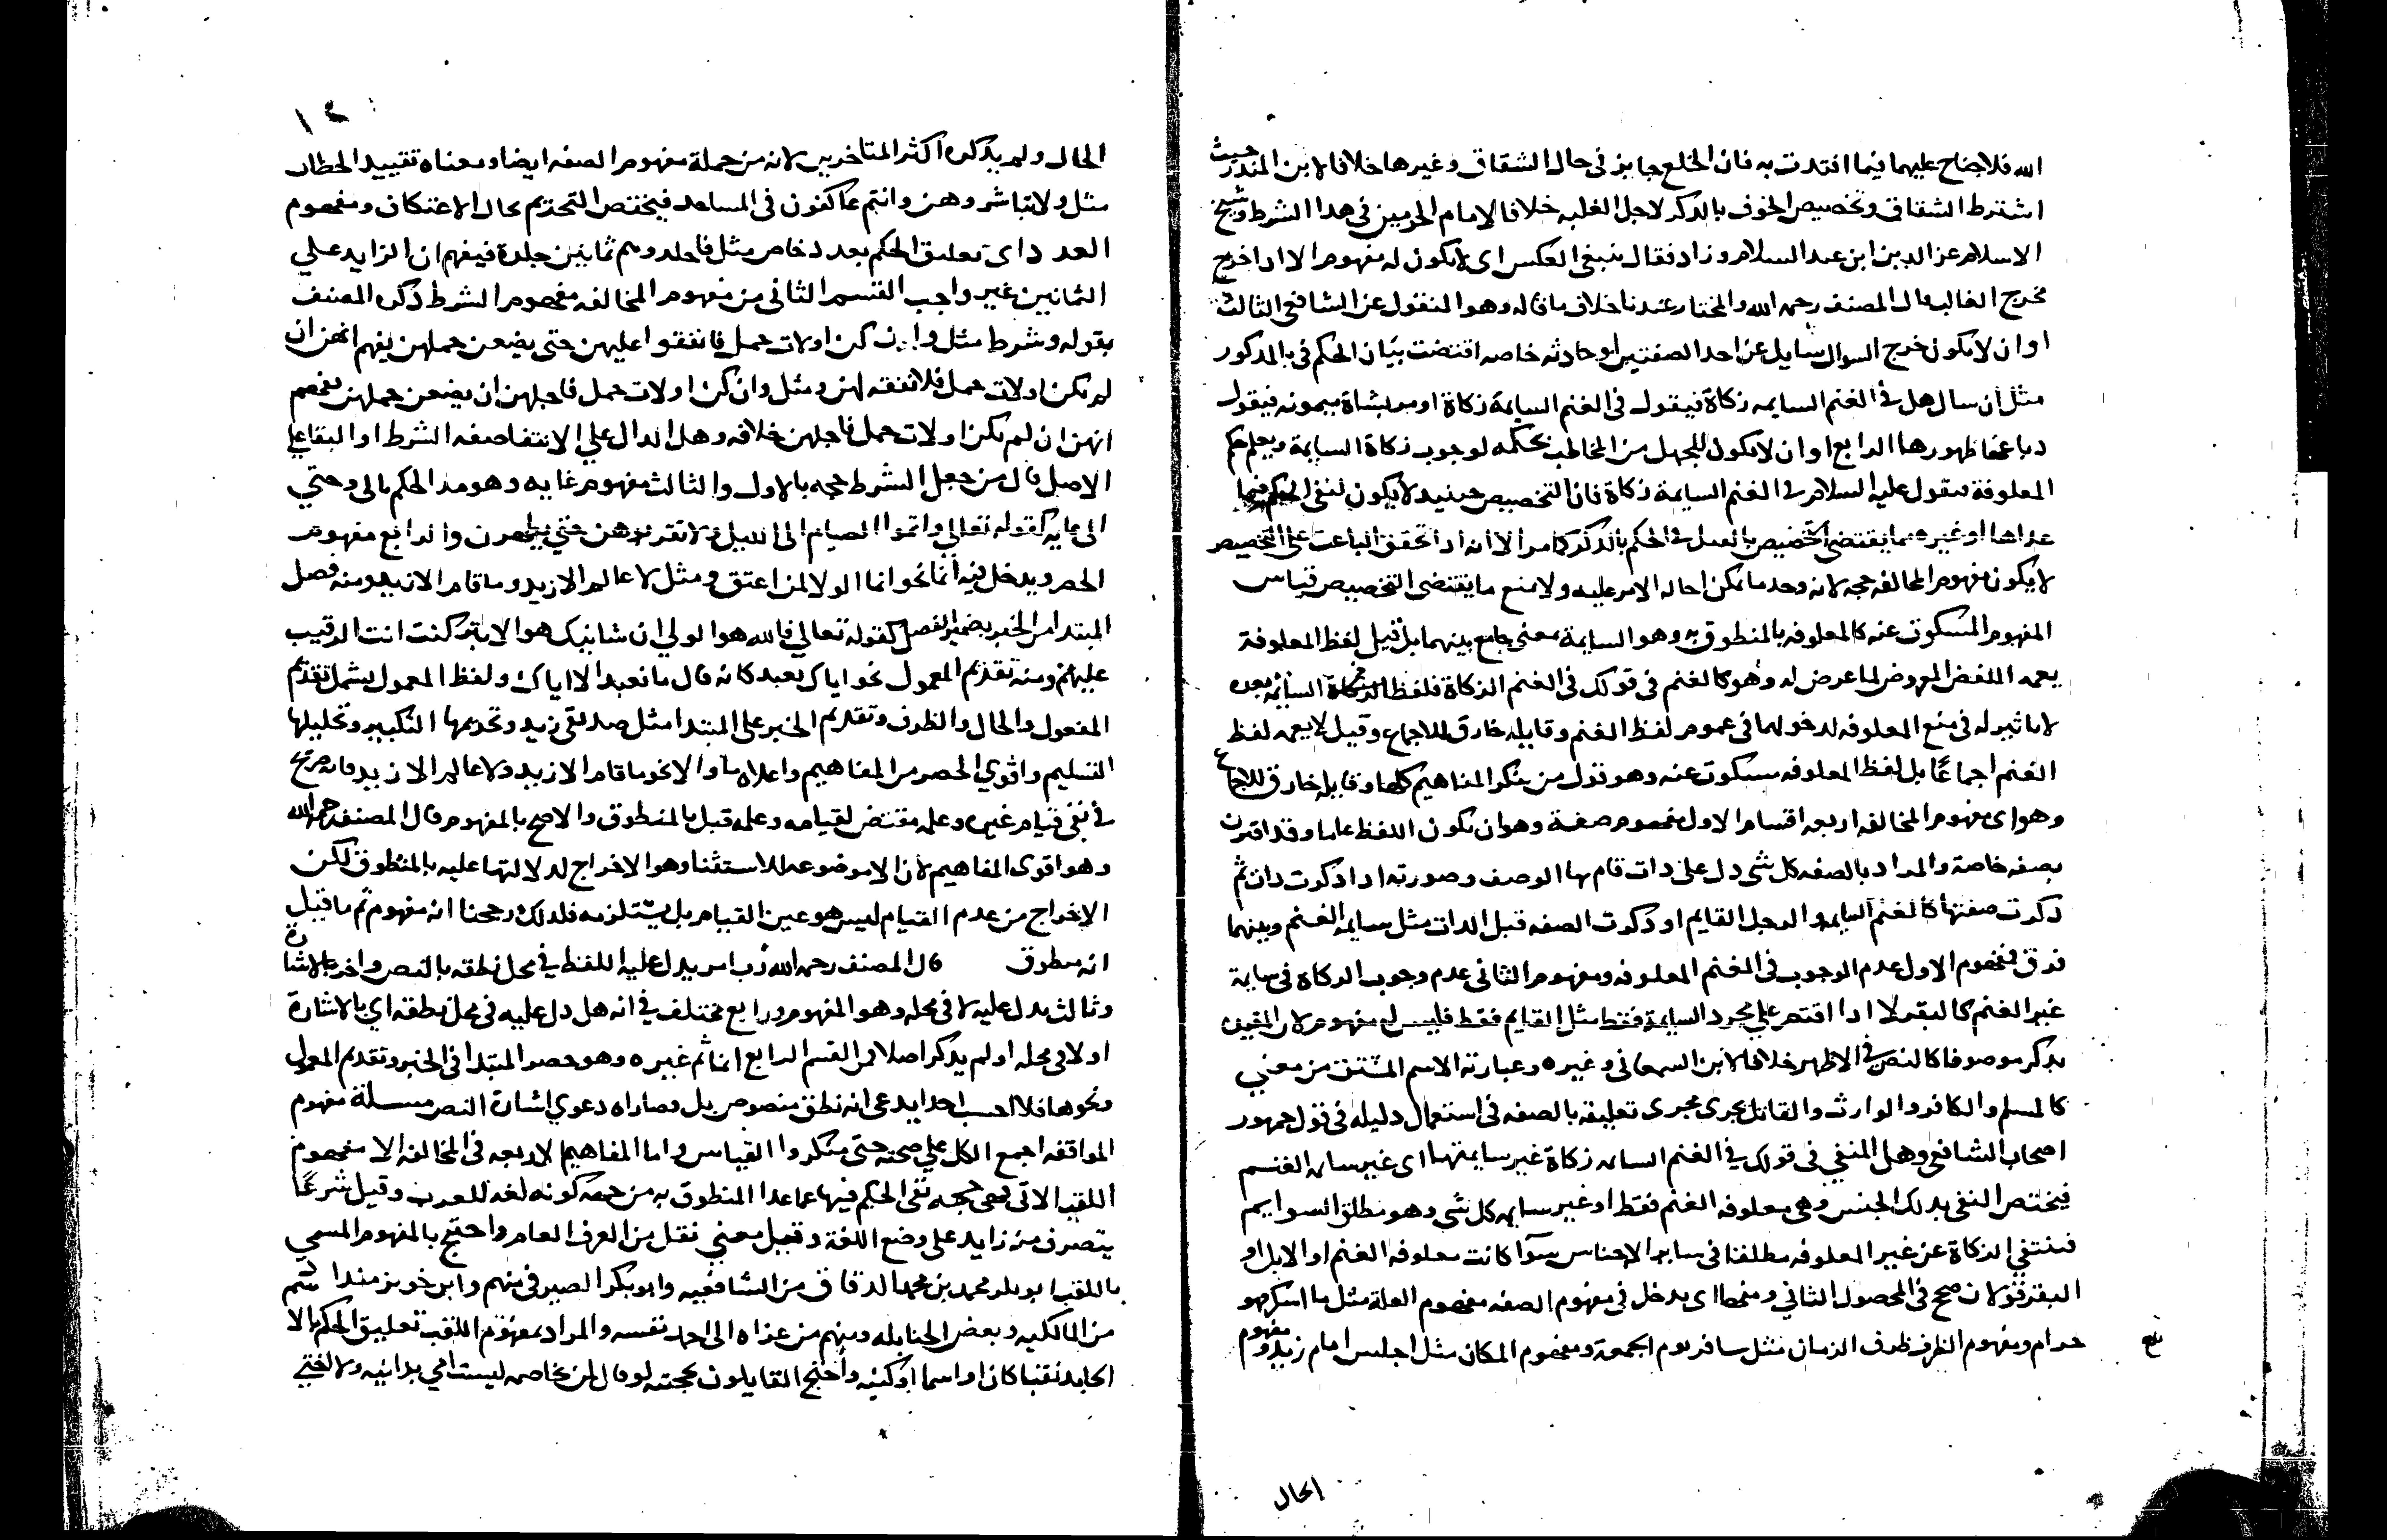 الله فلاجناح عليهما فيما افتدت به فان الخلع جايز فى حال الشقاق وغيرها خلافا لابن المنذر حيث
اشترط الشقاق وتخصيص الخوف بالذكر لاجل الغلبه خلافا لامام الحرمين فى هدا الشرط وشيخ
الاسلام عز الدين ابن عبد السلام وزاد فقال ينبغى العكس اى لايكون له مفهوم الا ادا خرج
مخرج الغالب قال المصنف رحمه الله والمختار عندنا خلاف ما قاله وهو المنقول عن الشافعى الثالث
او ان لا يكون خرج السوال سايل عن احد الصفتين او حادثه خاصه اقتضت بيان الحكم فى المدكور
مثل ان سال هل فى الغنم السايمه زكاة فيقول فى الغنم السايمة زكاة او مر بشاة ميمونه فيقول
دباغها طهورها الرابع او ان لا يكون للجهل من المخاطب بحكمه لوجوب زكاة السايمة ويعلم حكم
المعلوفة فيقول عليه السلام فى الغنم السايمة زكاة فان التخصيص حينيد لا يكون لنفى الحكم فيما
عداها او غيره مما يقتضى تخصيص بالعدل فى الحكم بالذكر كما مر الا انه ادا تحقق الباعث على التخصيص
لا يكون مفهوم المخالفه حجه لانه وحد ما يمكن احاله الامر عليه ولا يمنع ما يقتضى التخصيص قياس
المفهوم المسكوت عنه كالمعلوفه بالمنطوق به وهو السايمة بمعنى جامع بينهما بل قيل لفظ المعلوفة
يعمه اللفظ المعروض لما عرض له وهو كالغنم فى قولك فى الغنم الزكاة فلفظ السائمه بعده
لا تاثير له فى منع المعلوفه لدخولها فى عموم لفظ الغنم وقايله خارق للاجماع وقيل لا يعمه لفظ
الغنم اجماعًا بل لفظ المعلوفه مسكوت عنه وهو قول من ينكر المفاهيم كلها وقايله خارق للاجماع
وهو اى مفهوم المخالفه اربعه اقسام الاول مفهوم صفة وهو ان يكون اللفظ عاما وقد اقترن
بصفه خاصة والمراد بالصفه كل شى دل على دات قام بها الوصف وصورته ادا ذكرت دات ثم
ذكرت صفتها كالغنم السايمه والرجل القايم او ذكرت الصفه قبل الدات مثل سايمه الغنم وبينهما
فرق فمفهوم الاول عدم الوجوب فى الغنم المعلوفه ومفهوم الثانى عدم وجوب الزكاة فى سايمة
غير الغنم كالبقر لا ادا اقتصر على مجرد السايمة فقط مثل القايم فقط فليس له مفهوم لان
يدكر موصوفا كالنص فى الاظهر خلافا لابن السمعانى وغيره وعبارته الاسم المشتق من معني
كالمسلم والكافر والوارث والقاتل يجرى مجرى تعليقه بالصفه فى استعمال دليله فى قول جمهور
اصحاب الشافعى وهل المنفي فى قولك فى الغنم السايمه زكاة غير سايمتها اى غير سايمه الغنم
فيختص النفى بدلك الجنس وهى معلوفه الغنم فقط او غير سايمه كل شى وهو مطلق السوايم
فينتفي الزكاة عن غير المعلوفه مطلقا فى ساير الاجناس سوآ كانت معلوفه الغنم او الابل او
البقر قولان صح فى المحصول الثاني ومنها اى يدخل فى مفهوم الصفه مفهوم العلة مثل ما اسكر فهو
حرام ومفهوم الظرف ظرف الزمان مثل سافر يوم الجمعة ومفهوم المكان مثل اجلس امام زيد ومفهوم
الحال
الحال ولم يذكره اكثر المتاخرين لانه من جملة مفهوم الصفه ايضا ومعناه تقييد الخطاب
مثل ولا تباشروهن وانتم عاكفون فى المساجد فيختص التحريم بحال الاعتكاف ومفهوم
العدد اى تعليق الحكم بعدد خاص مثل فاجلدوهم ثمانين جلدة فيفهم ان الزايد علي
الثمانين غير واجب القسم الثانى من مفهوم المخالفه مفهوم الشرط ذكره المصنف
بقوله وشرط مثل وان كن اولات حمل فانفقوا عليهن حتى يضعن حملهن يفهم انهن ان
لم يكن اولات حمل فلا نفقه لهن ومثل وان كن اولات حمل فاجلهن ان يضعن حملهن يفهم
انهن ان لم يكن اولات حمل فاجلهن خلافه وهل الدال علي الانتفا صفه الشرط او البقا علي
الاصل قال من جعل الشرط حجه بالاول والثالث مفهوم غايه وهو مد الحكم بالى وحتي
الى غايه كقوله تعالى واتموا الصيام الى الليل ولا تقربوهن حتي يطهرن والرابع مفهوم
الحصر ويدخل فيه انما نحو انما الولا لمن اعتق ومثل لا عالم الا زيد وما قام الا زيد ومنه فصل
المبتدا من الخبر بضمير الفصل كقوله تعالي فالله هو الولي ان شانيك هو الابتر كنت انت الرقيب
عليهم ومنه تقديم المعمول نحو اياك نعبد كانه قال ما نعبد الا اياك ولفظ المعمول يشمل تقديم
المفعول والحال والظرف وتقديم الخبر على المبتدا مثل صديقى زيد وتحريمها التكبير وتحليلها
التسليم واقوي الحصر من المفاهيم واعلاه ما والا نحو ما قام الا زيد ولا عالم الا زيد فانه صريح
فى نفى قيام غيره وعلمه مقتض لقيامه وعلمه قيل بالمنطوق والاصح بالمفهوم قال المصنف رحمه الله
وهو اقوى المفاهيم لان الا موضوعه للاستثنا وهو الاخراج لدلالتها عليه بالمنطوق لكن
الاخراج من عدم القيام ليس هو عين القيام بل يستلزمه فلدلك رجحنا انه مفهوم ثم ما قيل
انه منطوق قال المصنف رحمه الله رب امر يدل عليه اللفظ فى محل نطقه بالنص واخر بالاشارة
وثالث يدل عليه لا فى محله وهو المفهوم ورابع مختلف فى انه هل دل عليه فى محل نطقه اي بالاشارة
اولا فى محله او لم يذكر اصلا من القسم الرابع انما ثم غيره وهو حصر المبتدا فى الخبر وتقديم المعمول
ونحوها فلا احسب احدا يدعى انه نطق منصوص بل قصاراه دعوي اشارة النص مسـلة مفهوم
الموافقه اجمع الكل علي صحته حتى منكروا القياس واما المفاهيم الاربعه فى المخالفه الا مفهوم
اللقب الاتى فهى حجه نفى الحكم فيها عما عدا المنطوق به من جهه كونه لغه للعرب وقيل شرعًا
يتصرف منه زايد على وضع اللغة وقيل معني نقل من العرف العام واحتج بالمفهوم المسمي
باللقب ابو بكر محمد بن محمد الدقاق من الشافعيه وابو بكر الصيرفى منهم وابن خويز منداد
من المالكيه وبعض الحنابله ومنهم من عزاه الى احمد نفسه والمراد بمفهوم اللقب تعليق الحكم بالا
لجامد لقبا كان او اسما او كنيه واحتج القايلون بحجته لو قال لمن يخاصمه ليست امي بزانيه ولا اختي